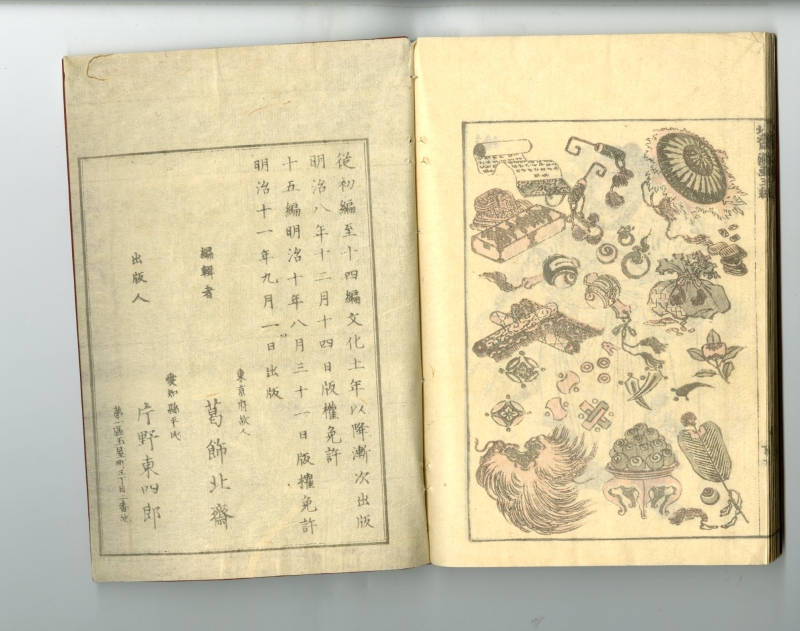 從初編至十四編文化十年以降漸次出版
明治八年十二月十四日版權免許
十五編明治十年八月三十一日版權免許
明治十一年九月一日出版
東京府故人
編輯者
葛飾北齋
愛知縣平民
出版人
片野東四郎